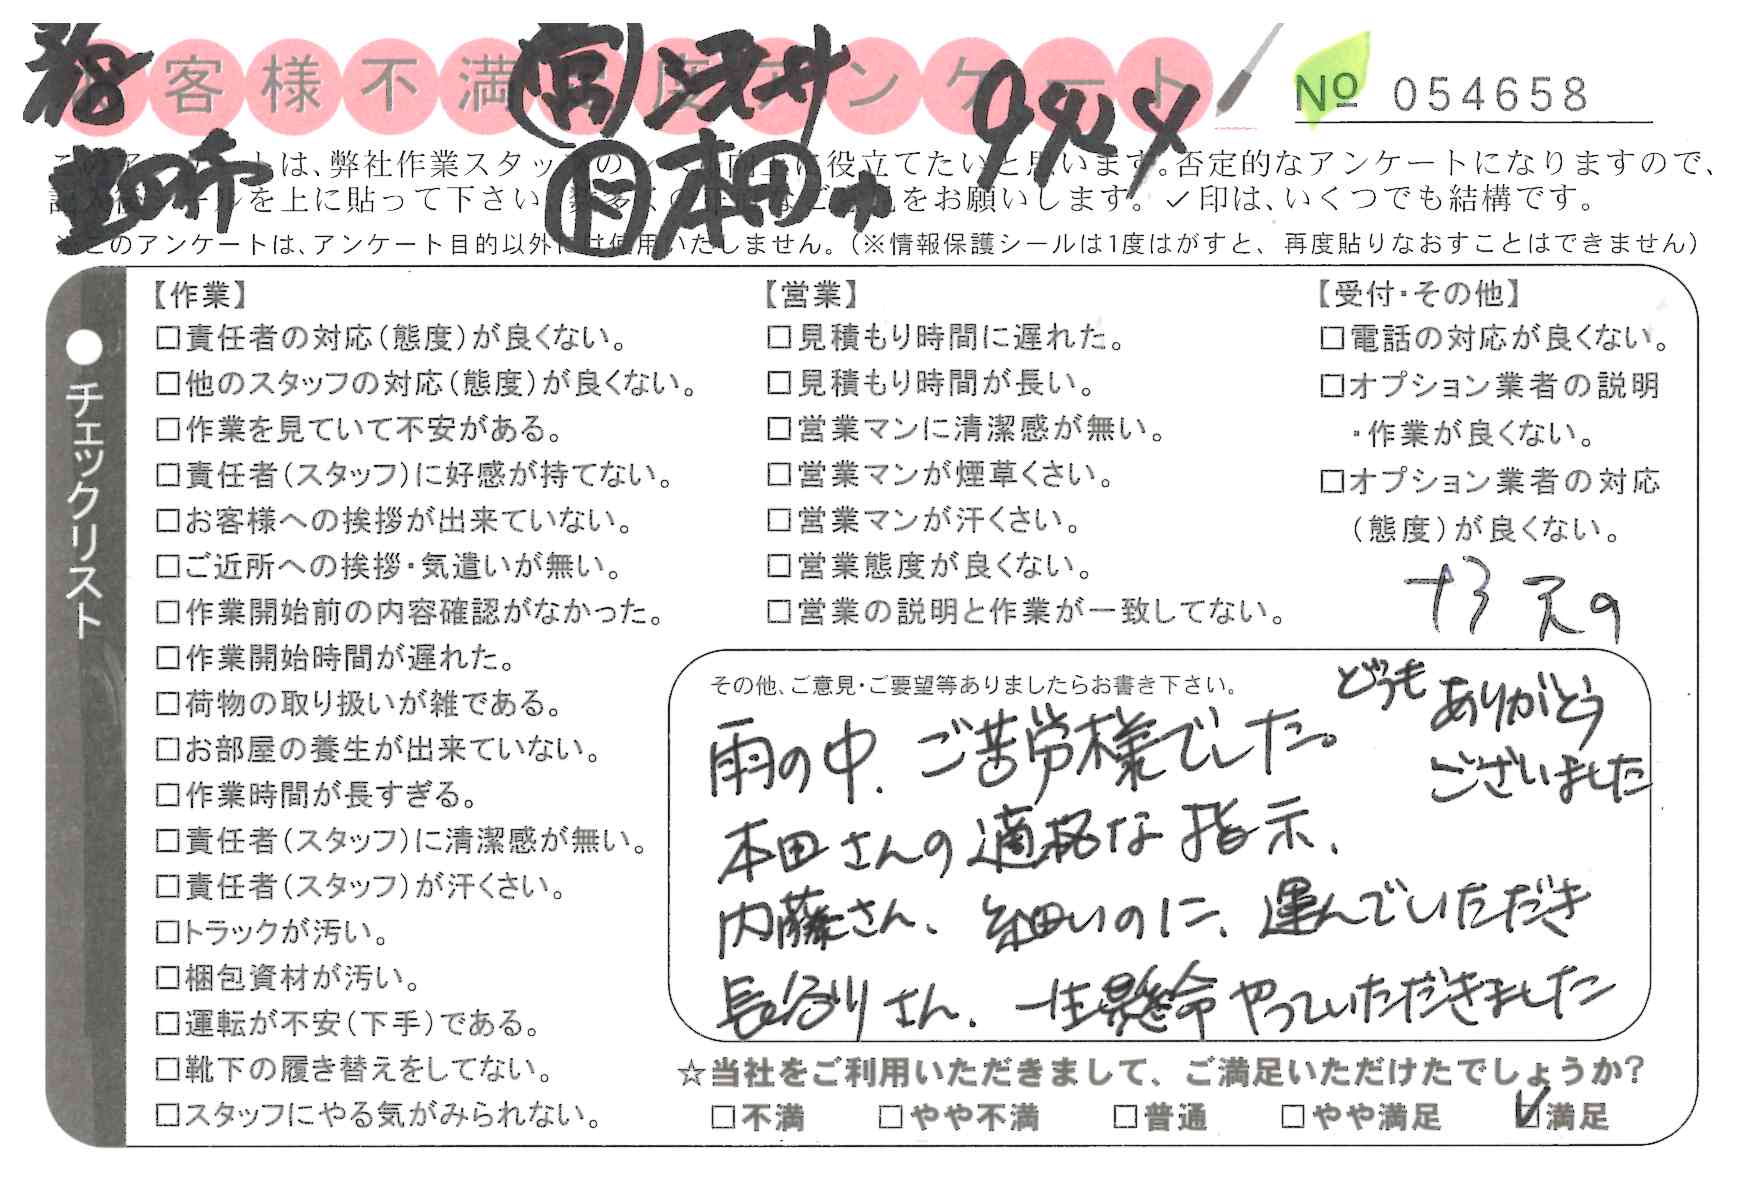 3/18
お客様不満足度アンケート
No 054658
このアンケートは、弊社作業スタッフのレベル向上に役立てたいと思います。否定的なアンケートになりますので、
をお願いします。✓印は、いくつでも結構です。
※このアンケートは、アンケート目的以外には使用いたしません。(※情報保護シールは1度はがすと、再度貼りなおすことはできません)
本田
●チェックリスト
【作業】
□責任者の対応(態度)が良くない。
□他のスタッフの対応(態度)が良くない。
□作業を見ていて不安がある。
□責任者(スタッフ)に好感が持てない。
□お客様への挨拶が出来ていない。
□ご近所への挨拶・気遣いが無い。
□作業開始前の内容確認がなかった。
□作業開始時間が遅れた。
□荷物の取り扱いが雑である。
□お部屋の養生が出来ていない。
□作業時間が長すぎる。
□責任者(スタッフ)に清潔感が無い。
□責任者(スタッフ)が汗くさい。
□トラックが汚い。
□梱包資材が汚い。
□運転が不安(下手)である。
□靴下の履き替えをしてない。
□スタッフにやる気がみられない。
【営業】
□見積もり時間に遅れた。
□見積もり時間が長い。
□営業マンに清潔感が無い。
□営業マンが煙草くさい。
□営業マンが汗くさい。
□営業態度が良くない。
□営業の説明と作業が一致してない。
【受付・その他】
□電話の対応が良くない。
□オプション業者の説明
・作業が良くない。
□オプション業者の対応
(態度)が良くない。
その他、ご意見・ご要望等ありましたらお書き下さい。
雨の中、ご苦労様でした。
どうもありがとう
ございました
本田さんの適格な指示、
内藤さん、細いのに、運んでいただき
長谷川さん、一生懸命やっていただきました
☆当社をご利用いただきまして、ご満足いただけたでしょうか?
□不満 □やや不満 □普通 □やや満足 ☑満足